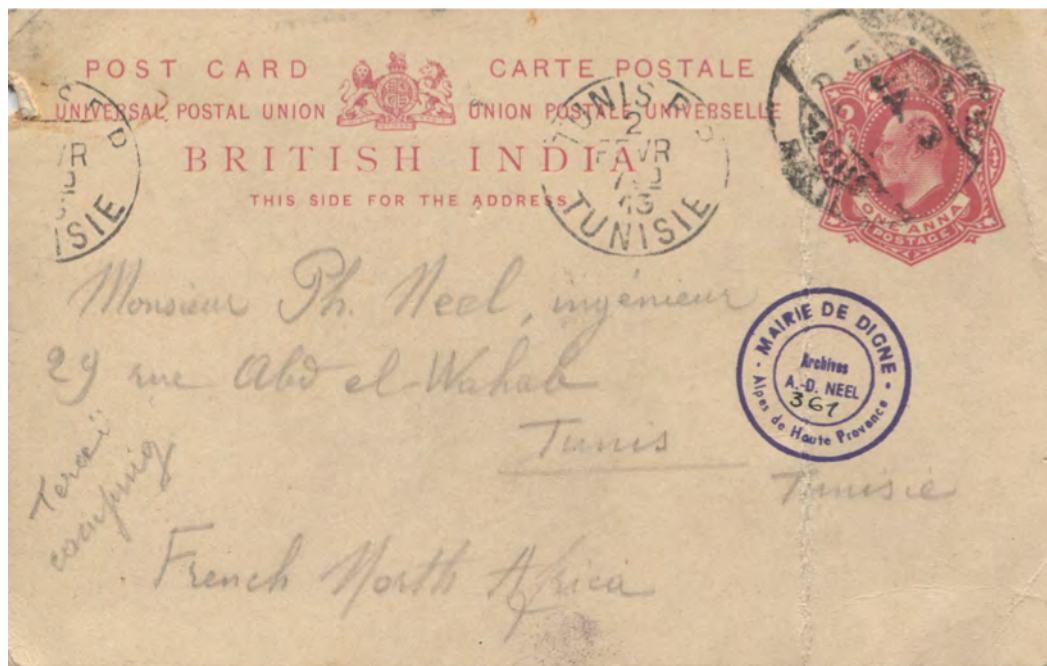 POST CARD CARTE POSTALE
UNIVERSAL POSTAL UNION UNION POSTALE UNIVERSELLE
BRITISH INDIA
THIS SIDE FOR THE ADDRESS
ONE ANNA
POSTAGE
TUNIS R.P
2
FEVR
13
TUNISIE
VR
ISIE
Monsieur Ph. Neel, ingénieur
29 rue Abd el-Wahab
Tunis
Tunisie
French North Africa
Teraï
camping
MAIRIE DE DIGNE
Archives
A.-D. NEEL
361
Alpes de Haute Provence